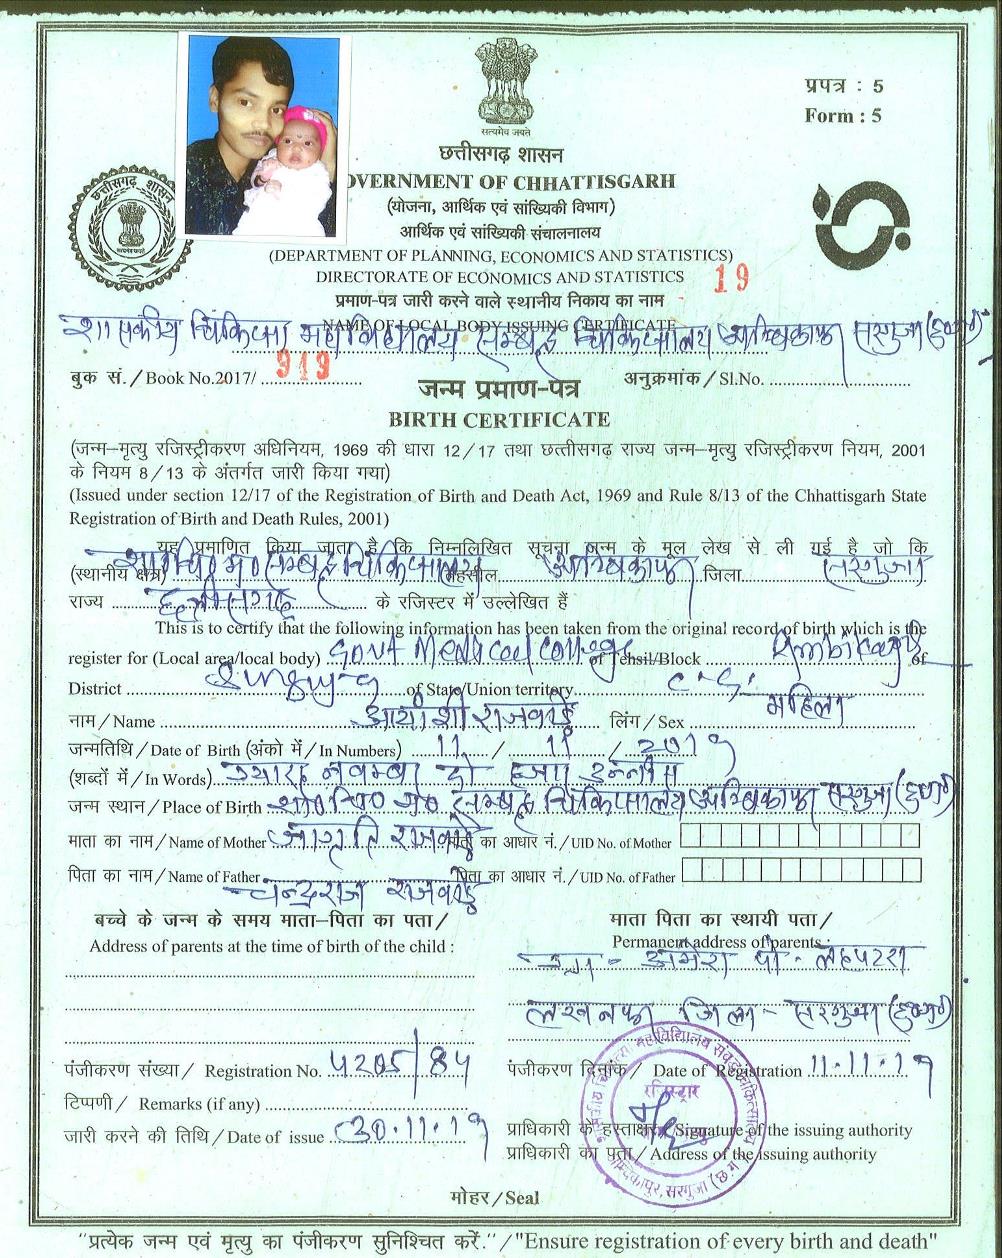 प्रपत्र : 5
Form : 5
सत्यमेव जयते
छत्तीसगढ़ शासन
OVERNMENT OF CHHATTISGARH
(योजना, आर्थिक एवं सांख्यिकी विभाग)
आर्थिक एवं सांख्यिकी संचालनालय
(DEPARTMENT OF PLANNING, ECONOMICS AND STATISTICS)
DIRECTORATE OF ECONOMICS AND STATISTICS
19
प्रमाण-पत्र जारी करने वाले स्थानीय निकाय का नाम
NAME OF LOCAL BODY ISSUING CERTIFICATE
शासकीय चिकित्सा महाविद्यालय सम्बद्ध चिकित्सालय अम्बिकापुर सरगुजा (छ0ग0)
बुक सं. / Book No.2017/ 919 अनुक्रमांक / Sl.No.
जन्म प्रमाण-पत्र
BIRTH CERTIFICATE
(जन्म–मृत्यु रजिस्ट्रीकरण अधिनियम, 1969 की धारा 12/17 तथा छत्तीसगढ़ राज्य जन्म–मृत्यु रजिस्ट्रीकरण नियम, 2001
के नियम 8/13 के अंतर्गत जारी किया गया)
(Issued under section 12/17 of the Registration of Birth and Death Act, 1969 and Rule 8/13 of the Chhattisgarh State
Registration of Birth and Death Rules, 2001)
यह प्रमाणित किया जाता है कि निम्नलिखित सूचना जन्म के मूल लेख से ली गई है जो कि
(स्थानीय क्षेत्र) शा0चि0म0 सम्बद्ध चिकित्सालय तहसील अम्बिकापुर जिला सरगुजा
राज्य छत्तीसगढ़ के रजिस्टर में उल्लेखित हैं
This is to certify that the following information has been taken from the original record of birth which is the
register for (Local area/local body) Govt Medical College of Tehsil/Block Ambikapur of
District Surguja of State/Union territory C.G.
नाम / Name आयांशी राजवाड़े लिंग / Sex महिला
जन्मतिथि / Date of Birth (अंको में / In Numbers) 11 / 11 / 2019
(शब्दों में / In Words) ग्यारह नवम्बर दो हजार उन्नीस
जन्म स्थान / Place of Birth शा0चि0म0 सम्बद्ध चिकित्सालय अम्बिकापुर सरगुजा (छ0ग0)
माता का नाम / Name of Mother जागृति राजवाड़े माता का आधार नं. / UID No. of Mother
पिता का नाम / Name of Father चन्द्रराज राजवाड़े पिता का आधार नं. / UID No. of Father
बच्चे के जन्म के समय माता–पिता का पता /
Address of parents at the time of birth of the child :
माता पिता का स्थायी पता /
Permanent address of parents :
ग्राम - अमेरा पो - लहपटरा
लखनपुर जिला - सरगुजा (छ0ग0)
पंजीकरण संख्या / Registration No. 4205/84 पंजीकरण दिनांक / Date of Registration 11.11.19
टिप्पणी / Remarks (if any)
जारी करने की तिथि / Date of issue 30.11.19
रजिस्ट्रार
प्राधिकारी के हस्ताक्षर / Signature of the issuing authority
प्राधिकारी का पता / Address of the issuing authority
अम्बिकापुर, सरगुजा (छ.ग.)
मोहर / Seal
"प्रत्येक जन्म एवं मृत्यु का पंजीकरण सुनिश्चित करें." / "Ensure registration of every birth and death"